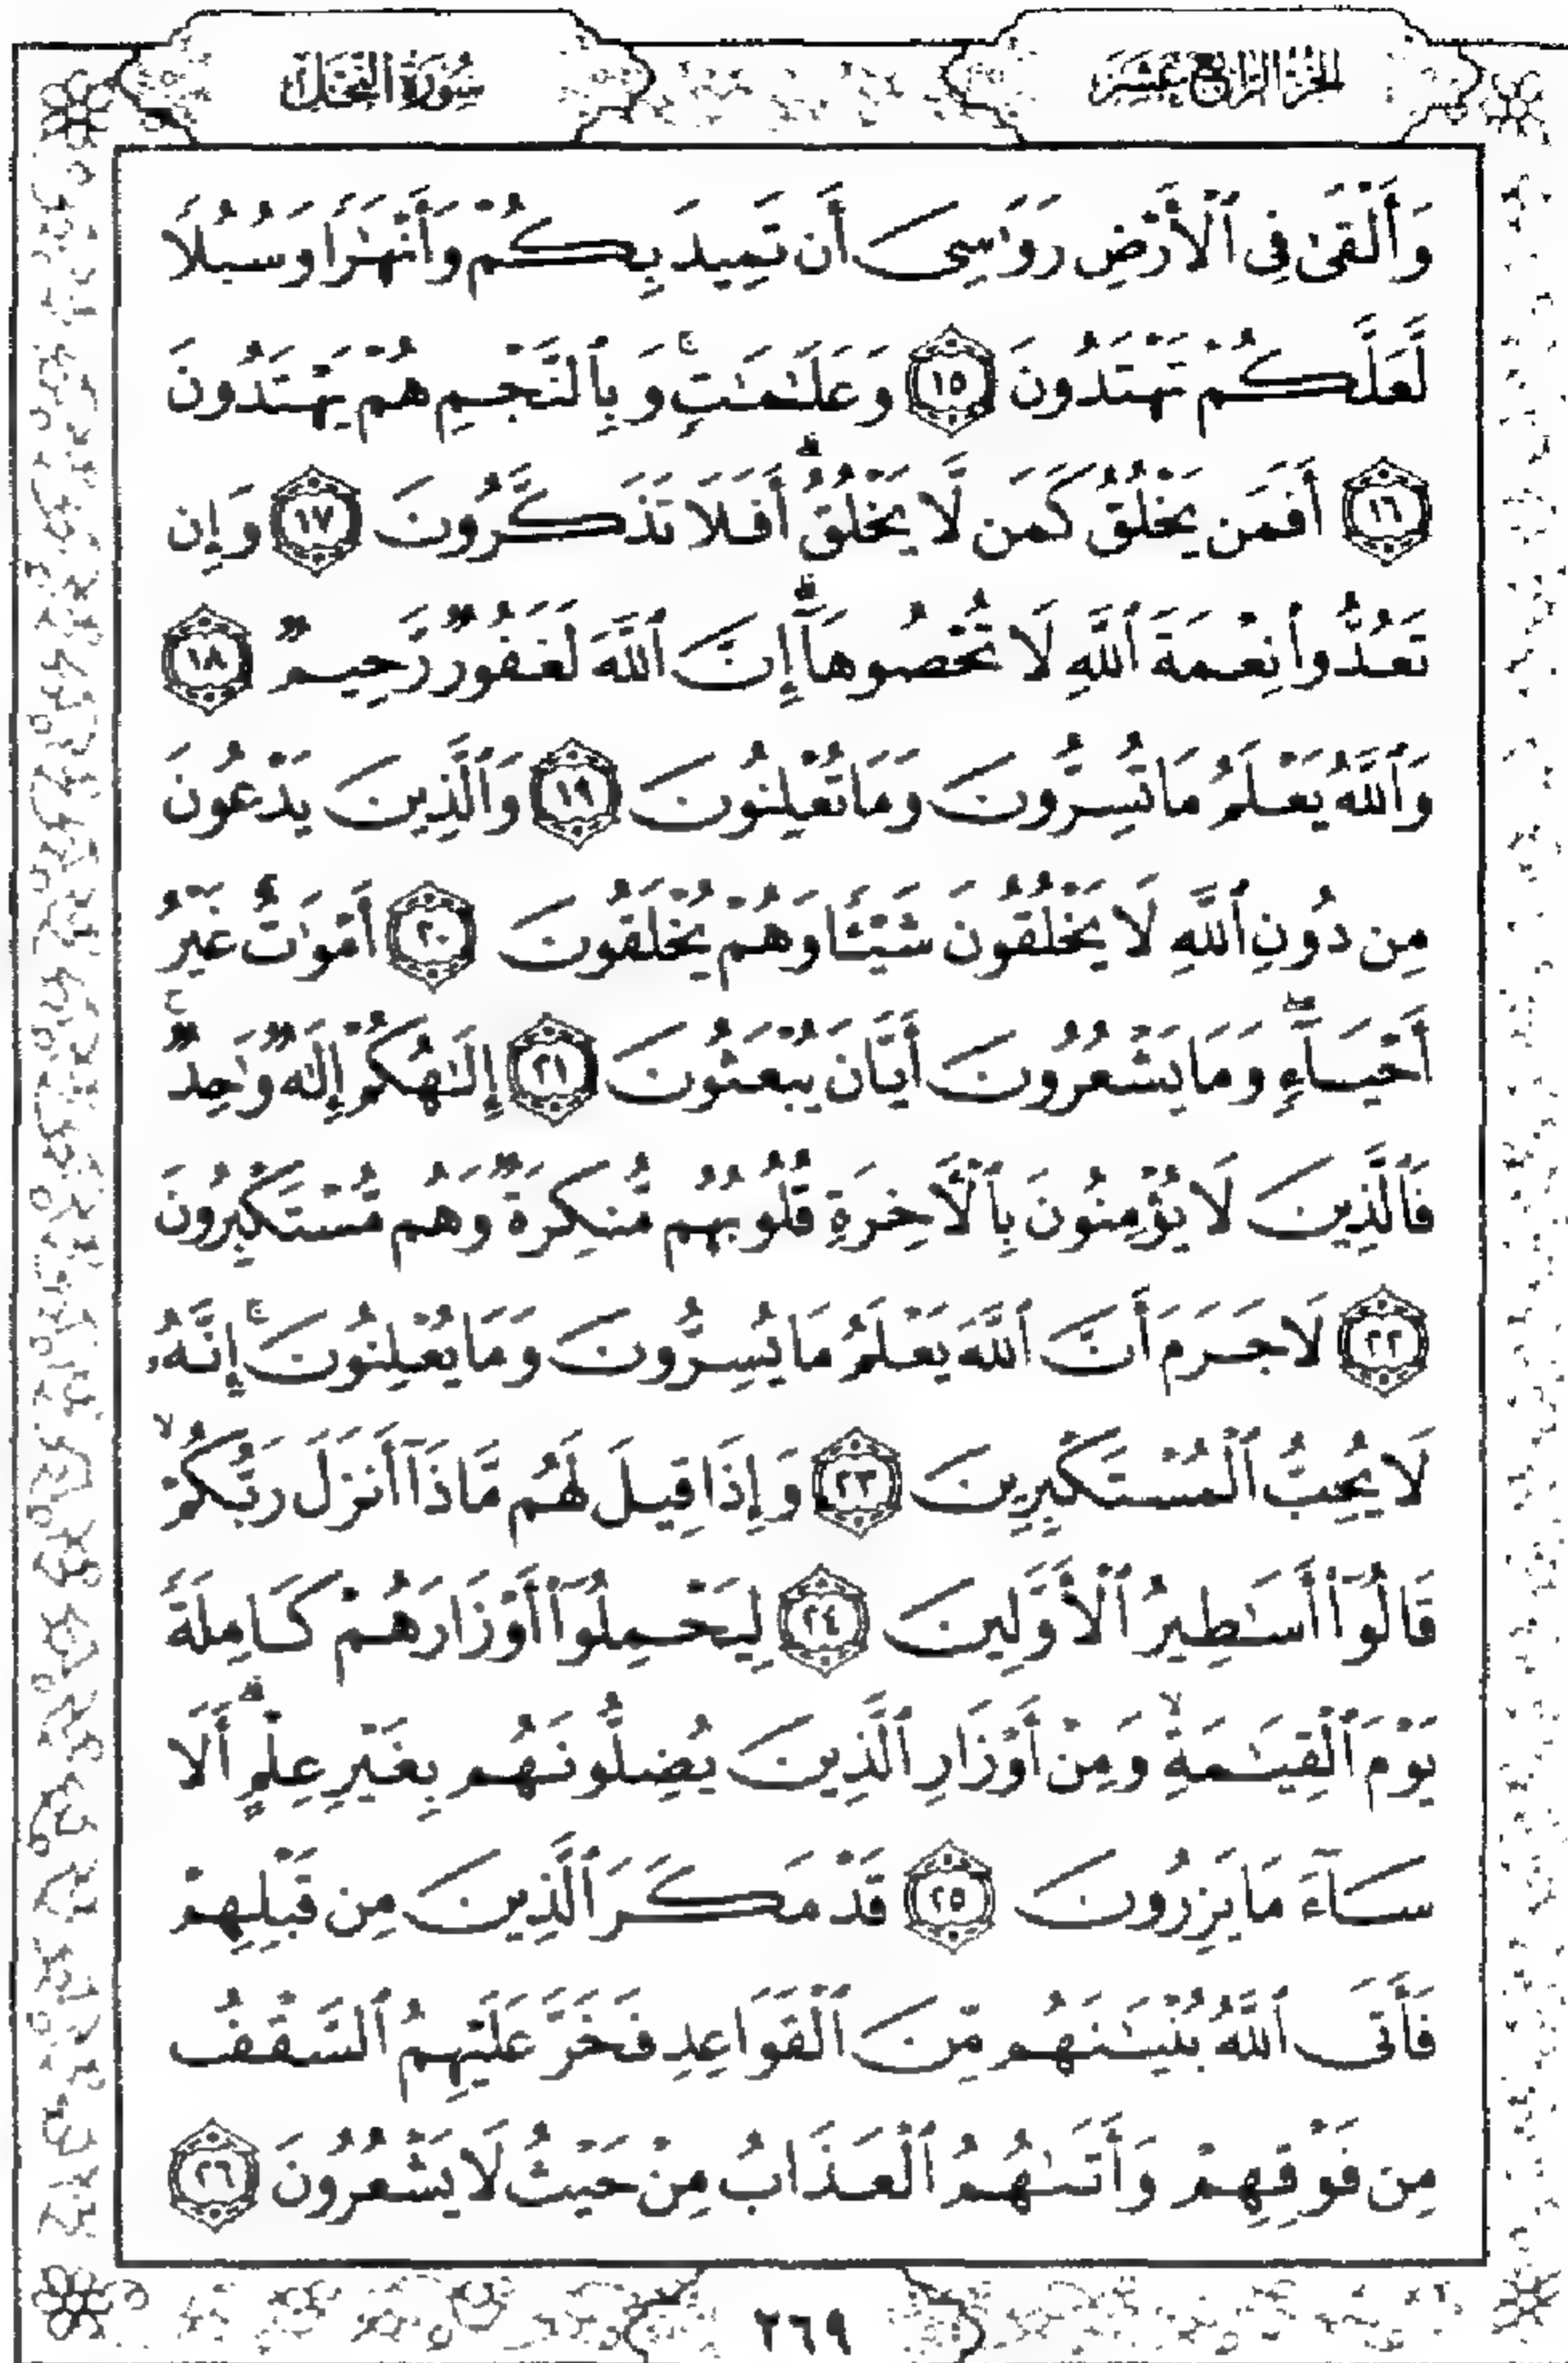 الجزء الرابع عشر
سورة النحل
وَأَلْقَىٰ فِى ٱلْأَرْضِ رَوَٰسِىَ أَن تَمِيدَ بِكُمْ وَأَنْهَٰرًا وَسُبُلًا
لَّعَلَّكُمْ تَهْتَدُونَ ١٥ وَعَلَٰمَٰتٍ ۚ وَبِٱلنَّجْمِ هُمْ يَهْتَدُونَ
١٦ أَفَمَن يَخْلُقُ كَمَن لَّا يَخْلُقُ ۗ أَفَلَا تَذَكَّرُونَ ١٧ وَإِن
تَعُدُّوا۟ نِعْمَةَ ٱللَّهِ لَا تُحْصُوهَآ ۗ إِنَّ ٱللَّهَ لَغَفُورٌ رَّحِيمٌ ١٨
وَٱللَّهُ يَعْلَمُ مَا تُسِرُّونَ وَمَا تُعْلِنُونَ ١٩ وَٱلَّذِينَ يَدْعُونَ
مِن دُونِ ٱللَّهِ لَا يَخْلُقُونَ شَيْـًٔا وَهُمْ يُخْلَقُونَ ٢٠ أَمْوَٰتٌ غَيْرُ
أَحْيَآءٍ ۖ وَمَا يَشْعُرُونَ أَيَّانَ يُبْعَثُونَ ٢١ إِلَٰهُكُمْ إِلَٰهٌ وَٰحِدٌ ۚ
فَٱلَّذِينَ لَا يُؤْمِنُونَ بِٱلْءَاخِرَةِ قُلُوبُهُم مُّنكِرَةٌ وَهُم مُّسْتَكْبِرُونَ
٢٢ لَا جَرَمَ أَنَّ ٱللَّهَ يَعْلَمُ مَا يُسِرُّونَ وَمَا يُعْلِنُونَ ۚ إِنَّهُۥ
لَا يُحِبُّ ٱلْمُسْتَكْبِرِينَ ٢٣ وَإِذَا قِيلَ لَهُم مَّاذَآ أَنزَلَ رَبُّكُمْ ۙ
قَالُوٓا۟ أَسَٰطِيرُ ٱلْأَوَّلِينَ ٢٤ لِيَحْمِلُوٓا۟ أَوْزَارَهُمْ كَامِلَةً
يَوْمَ ٱلْقِيَٰمَةِ ۙ وَمِنْ أَوْزَارِ ٱلَّذِينَ يُضِلُّونَهُم بِغَيْرِ عِلْمٍ ۗ أَلَا
سَآءَ مَا يَزِرُونَ ٢٥ قَدْ مَكَرَ ٱلَّذِينَ مِن قَبْلِهِمْ
فَأَتَى ٱللَّهُ بُنْيَٰنَهُم مِّنَ ٱلْقَوَاعِدِ فَخَرَّ عَلَيْهِمُ ٱلسَّقْفُ
مِن فَوْقِهِمْ وَأَتَىٰهُمُ ٱلْعَذَابُ مِنْ حَيْثُ لَا يَشْعُرُونَ ٢٦
٢٦٩